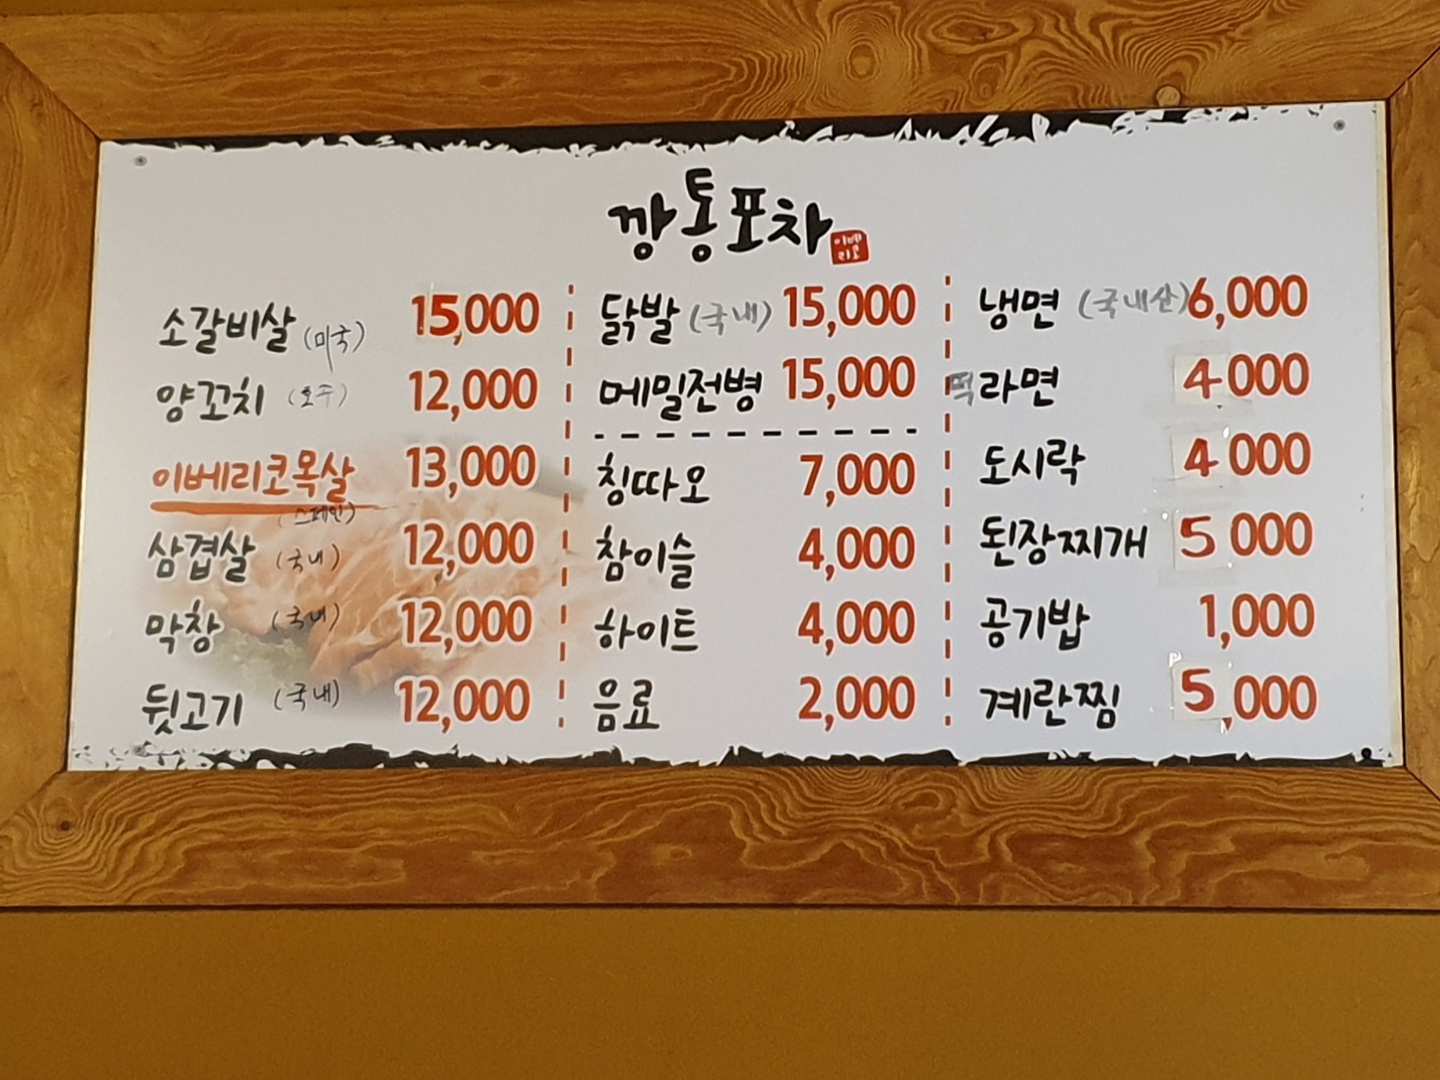 깡통포차
소갈비살 (미국) 15,000
양꼬치 (호주) 12,000
이베리코목살 13,000
(스페인)
삼겹살 (국내) 12,000
막창 (국내) 12,000
뒷고기 (국내) 12,000
닭발 (국내) 15,000
메밀전병 15,000
칭따오 7,000
참이슬 4,000
하이트 4,000
음료 2,000
냉면 (국내산) 6,000
떡라면 4000
도시락 4000
된장찌개 5000
공기밥 1,000
계란찜 5,000